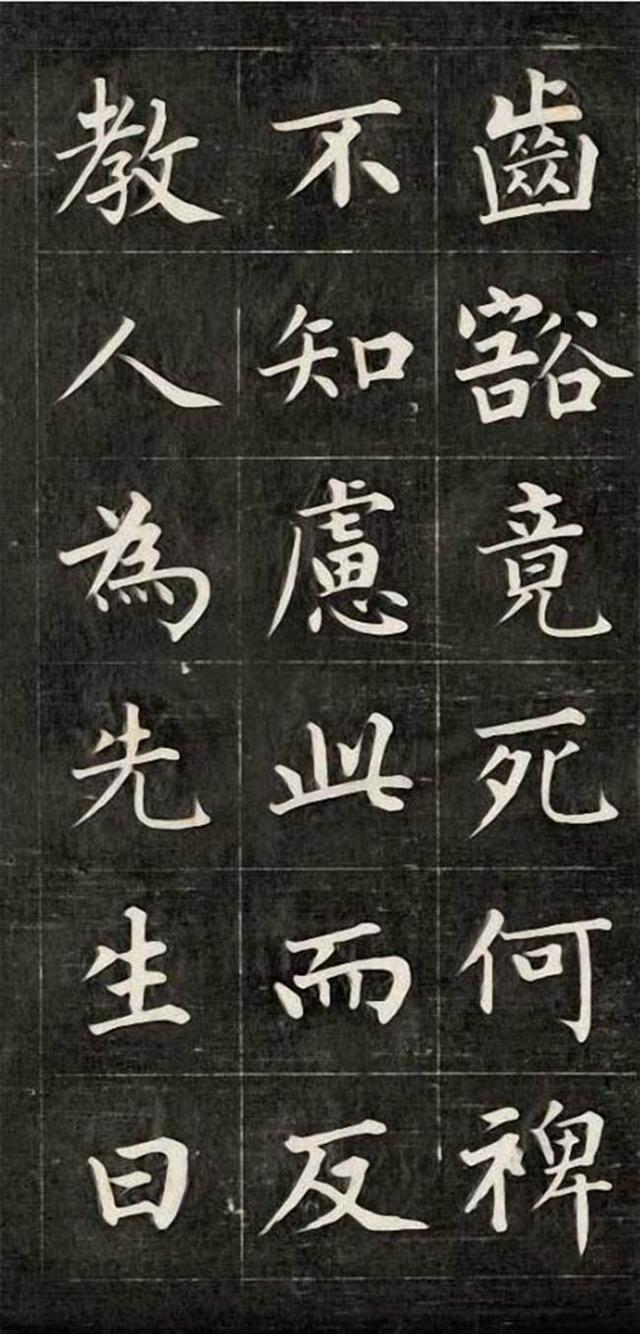 齒豁竟死何裨
不知慮此而反
教人為先生曰